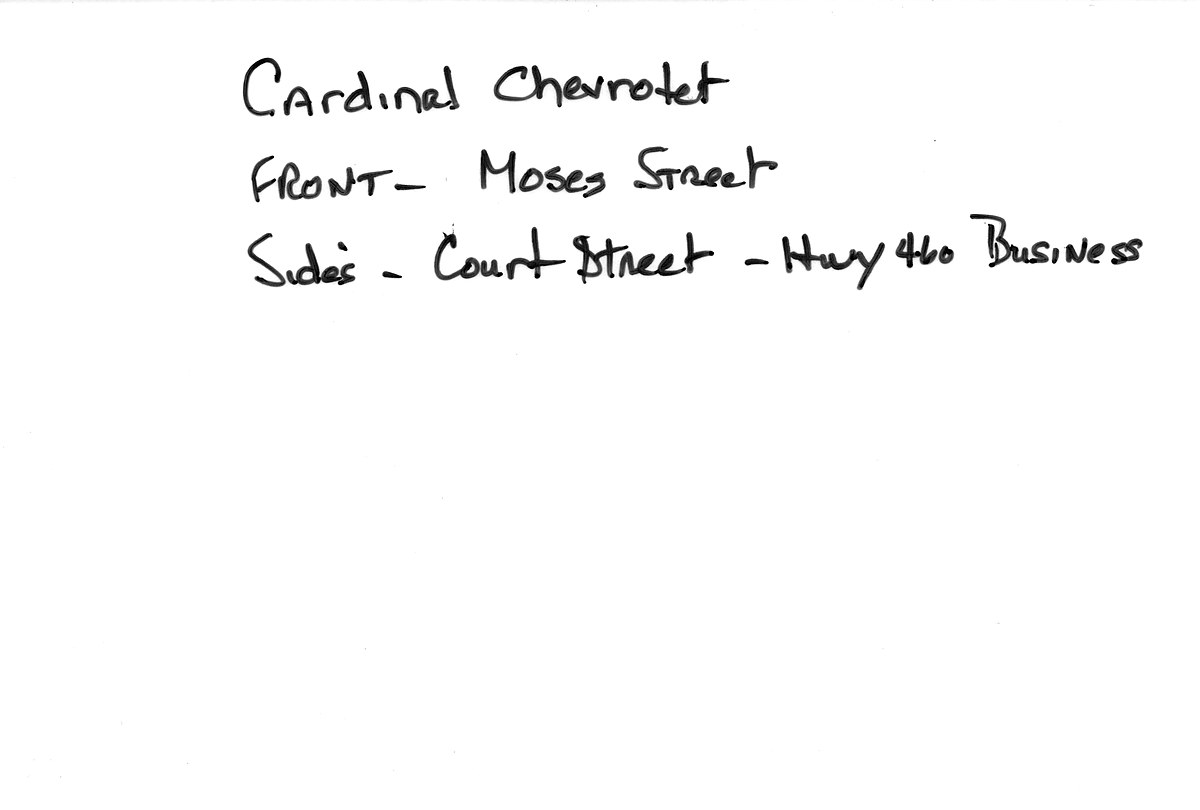 Cardinal Chevrolet
FRONT - Moses Street
Sides - Court Street - Hwy 460 Business